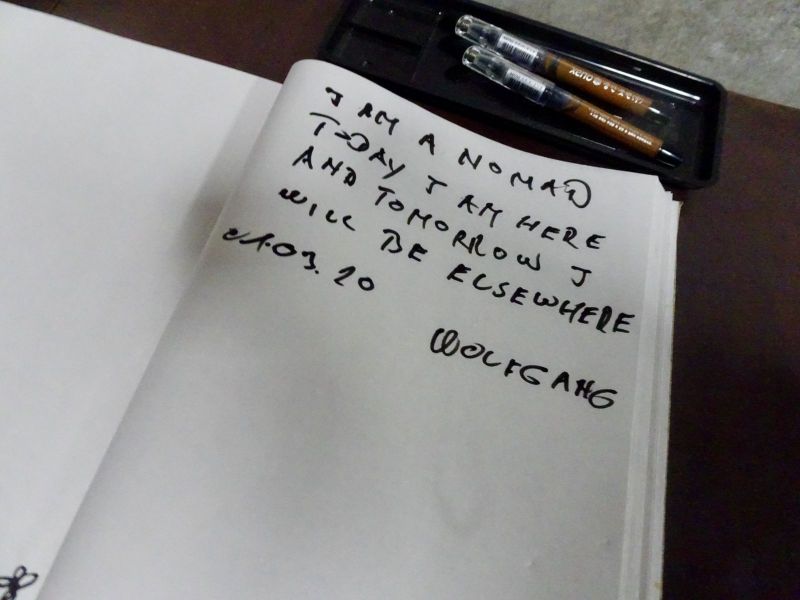 I AM A NOMAD
TODAY I AM HERE
AND TOMORROW I
WILL BE ELSEWHERE
21.03.20
WOLFGANG